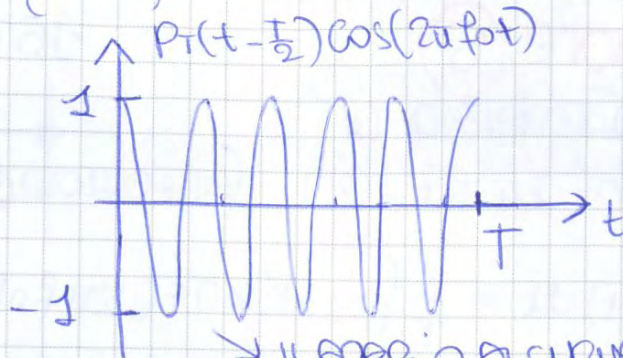 P_T(t-T/2)cos(2πf0t)
1
t
T
-1